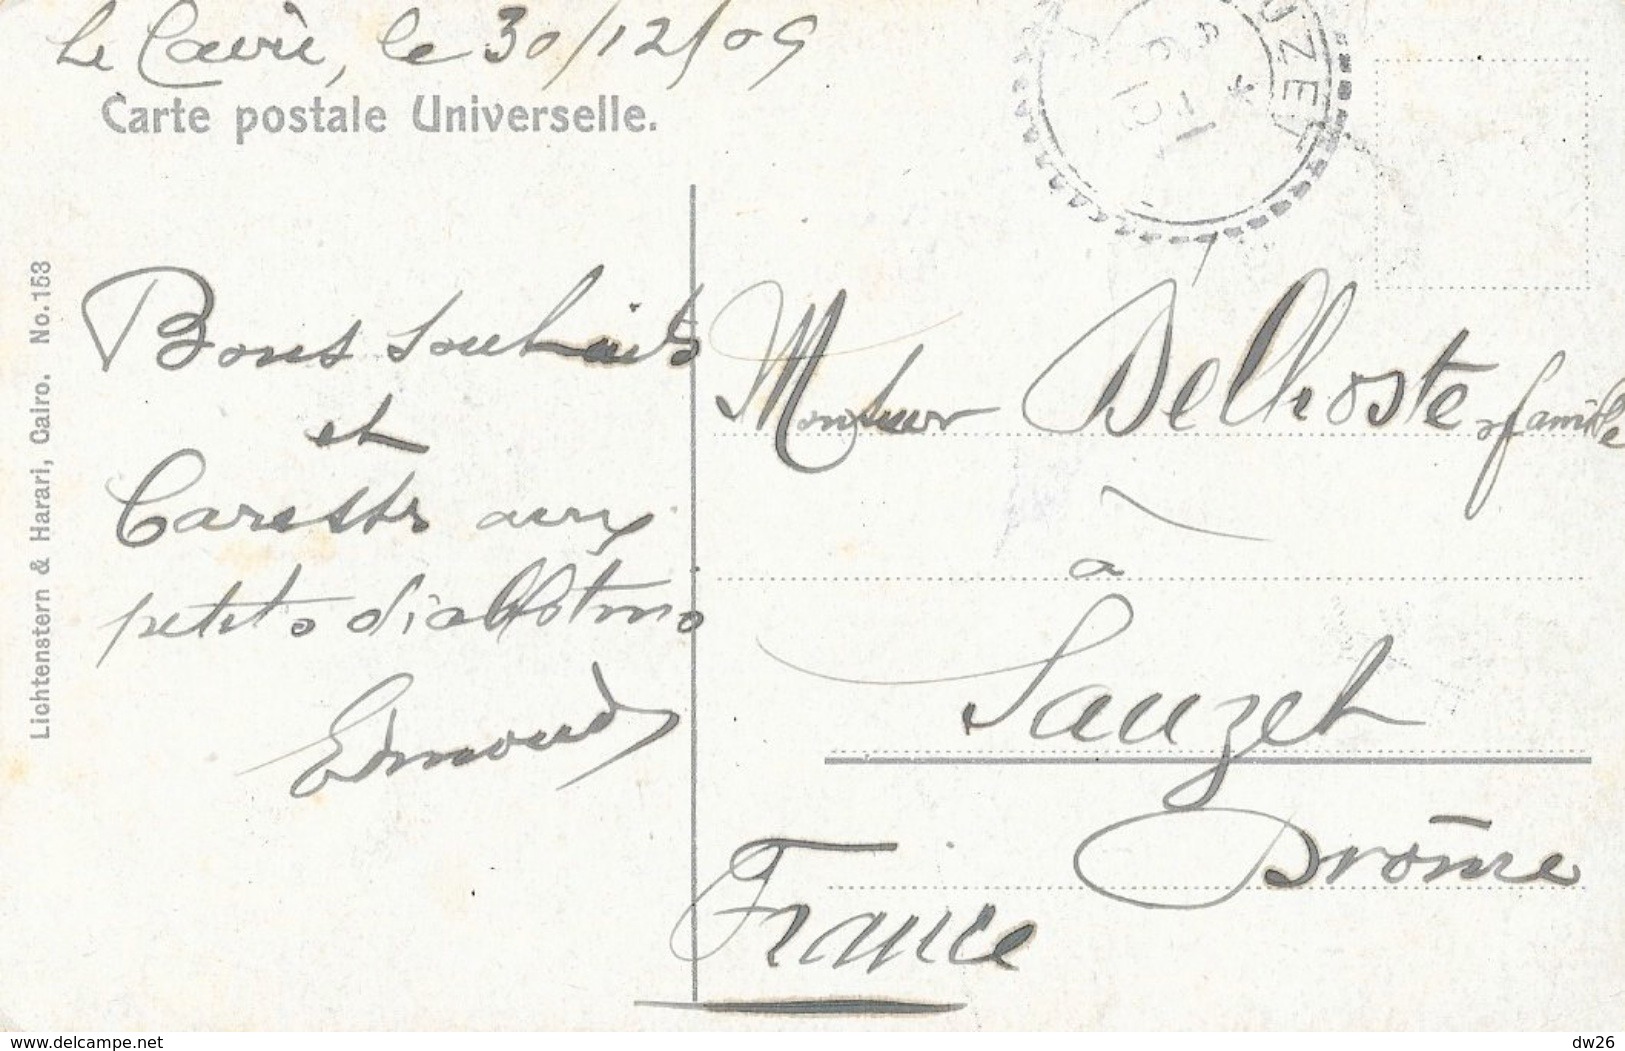 Le Caire, le 30/12/09
Carte postale Universelle.
UZET
Lichtenstern & Harari, Cairo. No. 153
Bons souhaits
et
Caresses aux
petits diablotins
Edmond
Monsieur Delhoste & famille
à
Sauzet
Drôme
France
www.delcampe.net
dw26